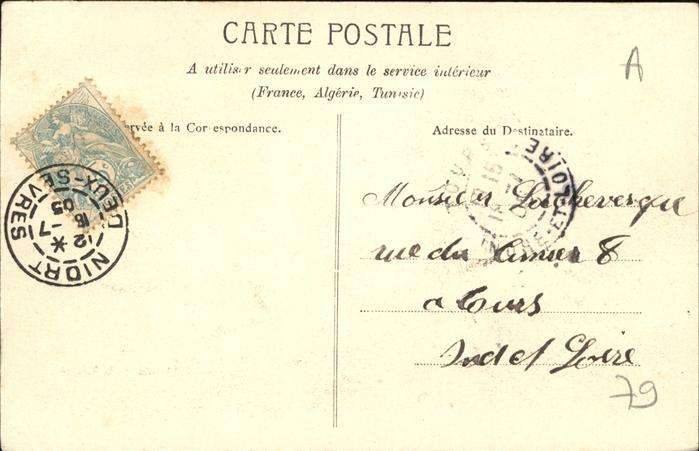 CARTE POSTALE
A utiliser seulement dans le service intérieur
(France, Algérie, Tunisie)
A
ervée à la Correspondance.
Adresse du Destinataire.
NIORT
DEUX-SÈVRES
12 *
-7
15
05
TOURS
15
INDRE-ET-LOIRE
Monsieur
rue du 8
a Tours
Ind et Loire
79